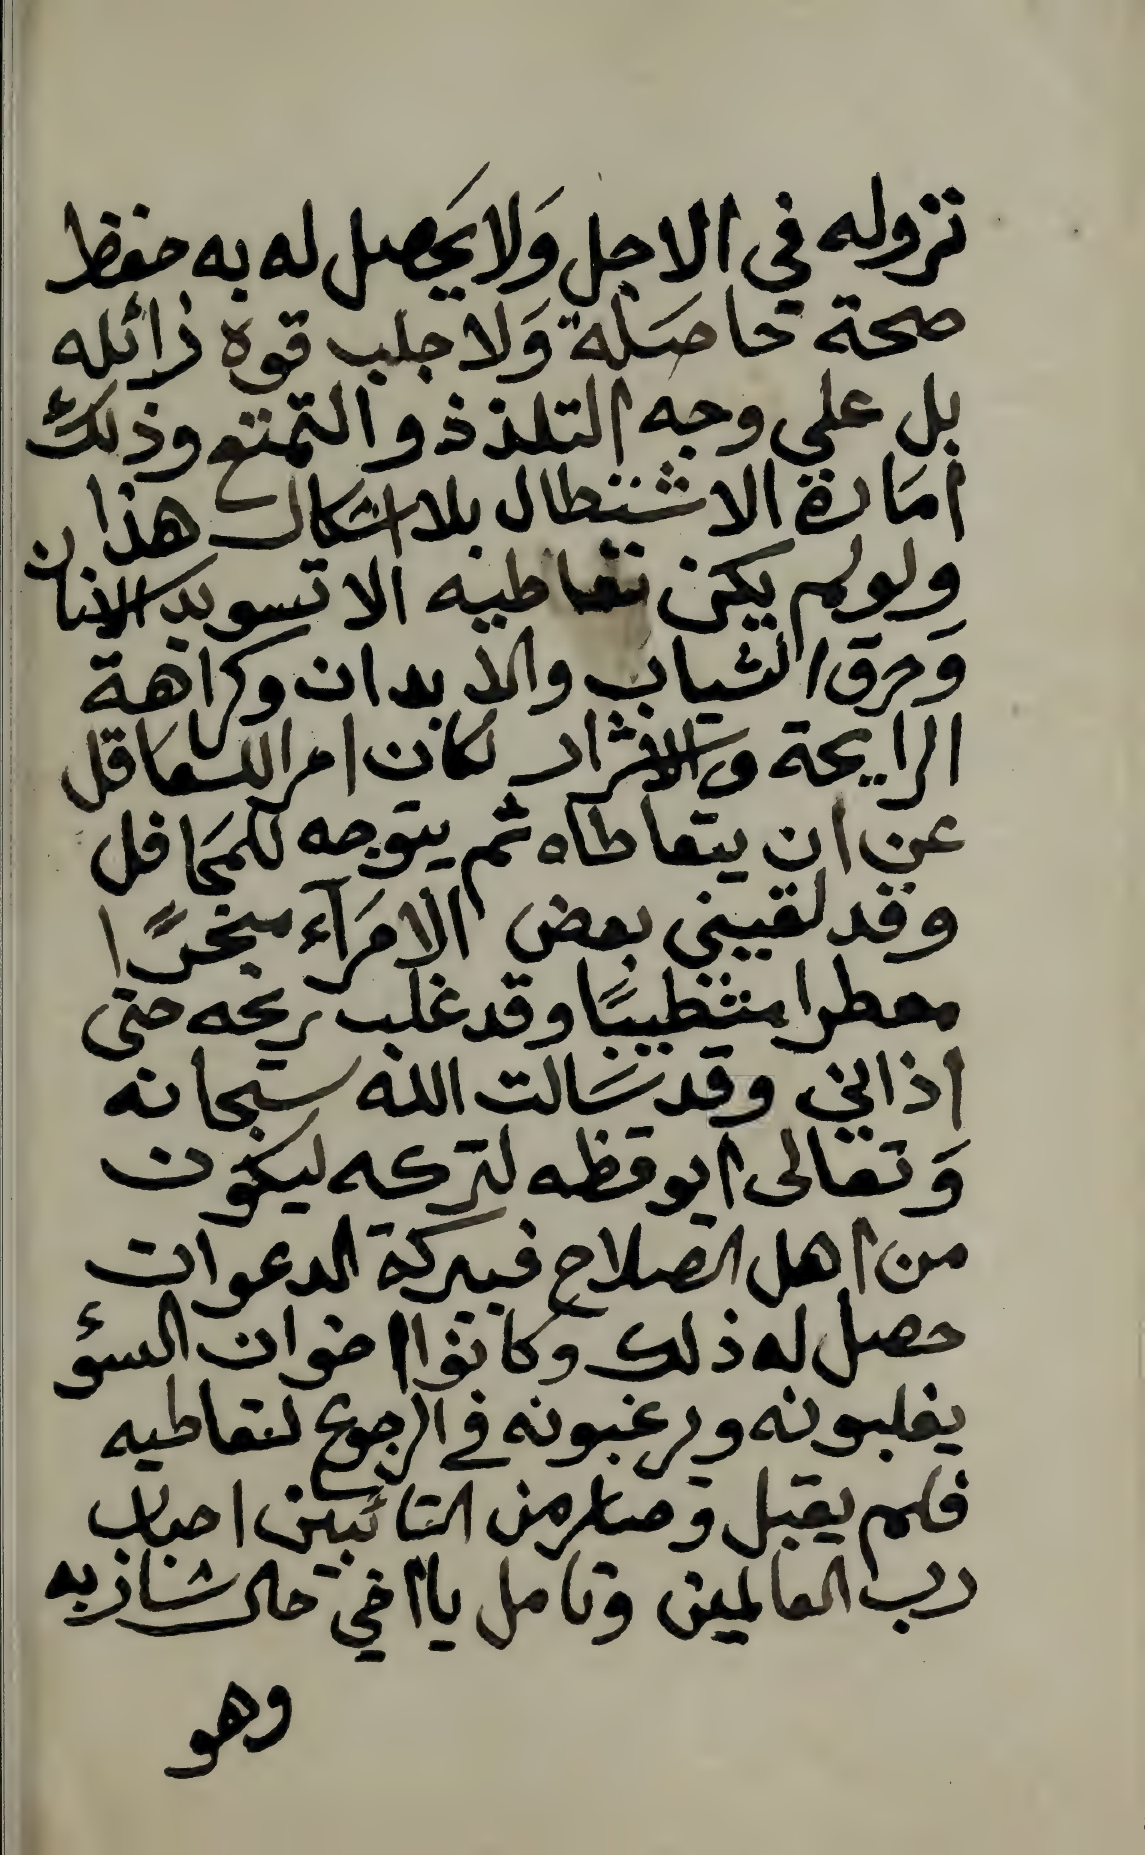 تزوله في الاجل وَلا يَحصل له به حفظ
صحة حاصَلة وَلا جلب قوة زائله
بل على وجه التلذذ والتمتع وذلك
امَارة الاشنطال بلا اشكال هذا
ولو لم يكن تعاطيه الا تسويد الاسنان
وَحرق الثياب والابدان وكراهة
الرايحة والاقذار لكان امرا للعَاقل
عن ان يتعاطاه ثم يتوجه للمحَافل
وقد لقيني بعض الامَرآء مبخرًا
معطرا متطيبًا وقد غلب ريحه حتى
اذاني وقد سَالت الله سبحانه
وَتعالى ايوقظه لتركه ليكون
من اهل الصلاح فببركة الدعوات
حصل له ذلك وكانوا اخوان السوء
يغلبونه ويرغبونه في الرجوع لتعاطيه
فلم يقبل وصار من التائبين احباب
رب العالمين وتامل يا اخي حال شاربه
وهو